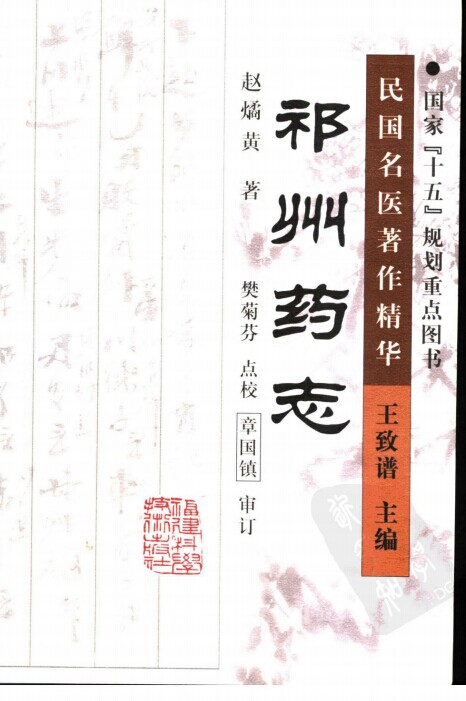 ●国家『十五』规划重点图书
民国名医著作精华 王致谱 主编
祁州药志
赵燏黄 著 樊菊芬 点校 章国镇 审订
福建科学
技术出版社